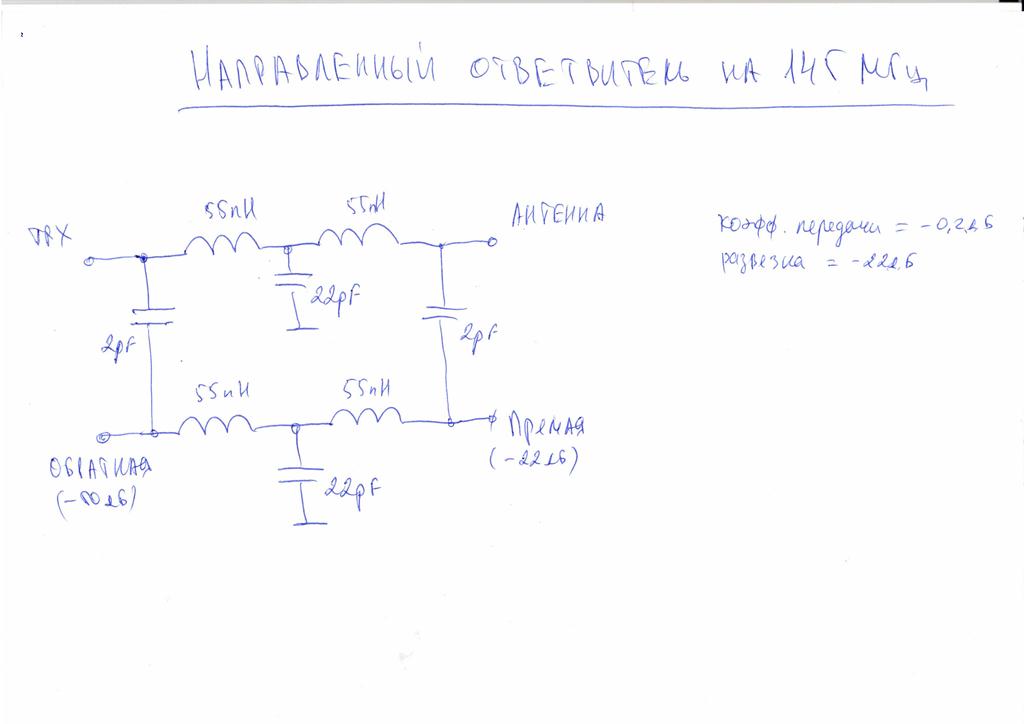 НАПРАВЛЕННЫЙ ОТВЕТВИТЕЛЬ НА 145 МГЦ
55nH
55nH
АНТЕННА
TRX
коэфф. передачи = -0,2дБ
развезка = -22дБ
22pF
2pF
2pF
55nH
55nH
ПРЯМАЯ
(-22дБ)
ОБРАТНАЯ
22pF